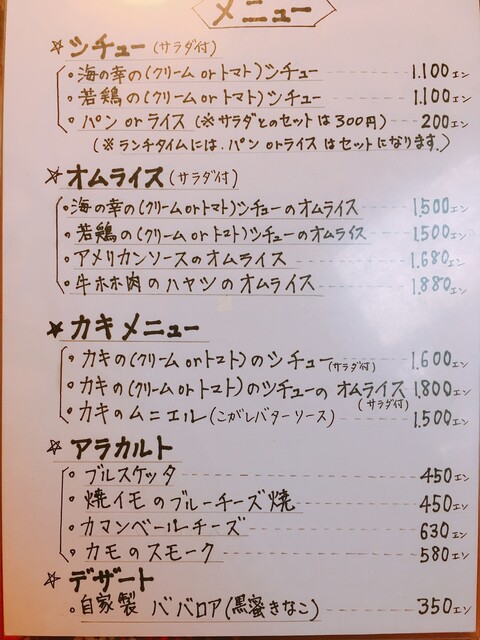 メニュー
☆シチュー(サラダ付)
・海の幸の(クリーム or トマト)シチュー 1.100エン
・若鶏の(クリーム or トマト)シチュー 1.100エン
・パン or ライス (※サラダとのセットは300円) 200エン
(※ランチタイムには、パン or ライスはセットになります。)
☆オムライス(サラダ付)
・海の幸の(クリーム or トマト)シチューのオムライス 1.500エン
・若鶏の(クリーム or トマト)シチューのオムライス 1.500エン
・アメリカンソースのオムライス 1.680エン
・牛ホホ肉のハヤシのオムライス 1.880エン
☆カキメニュー
・カキの(クリーム or トマト)のシチュー(サラダ付) 1.600エン
・カキの(クリーム or トマト)のシチューの オムライス 1.800エン
(サラダ付)
・カキのムニエル(こがしバターソース) 1.500エン
☆アラカルト
・ブルスケッタ 450エン
・焼イモのブルーチーズ焼 450エン
・カマンベールチーズ 630エン
・カモのスモーク 580エン
☆デザート
・自家製 ババロア(黒蜜きなこ) 350エン